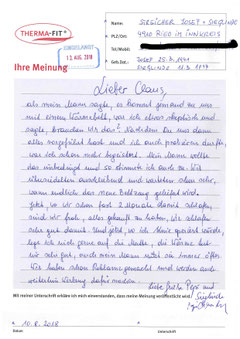 THERMA-FIT®
EINGELANGT
13. AUG. 2018
Ihre Meinung
Name:
JOSEF + SIEGLINDE
PLZ/Ort:
4910 RIED im INNKREIS
Tel/Mobil:
Geb. Dat.:
JOSEF 25.3.1941
SIEGLINDE
Lieber Claus,
als mein Mann sagte, es kommt jemand zu uns
mit einem
sagte, brauchen wir das? Nachdem Du uns dann
alles vorgeführt hast und ich auch probieren durfte,
war ich schon mehr begeistert. Mein Mann wollte
das unbedingt und so stimmte ich auch zu. Wir
und warteten schon sehr,
wann endlich das neue Bettzeug geliefert wird.
Jetzt, wo wir schon fast 2 Monate damit schlafen,
sind wir froh, alles gekauft zu haben. Wir schlafen
sehr gut damit. Und jetzt, wo ich
lege ich mich gerne auf die Matte, die Wärme tut
mir sehr gut, auch mein Mann nützt sie immer öfter.
Wir haben schon Reklame gemacht und werden auch
weiterhin Werbung dafür machen.
Liebe Grüße Pepi und
Sieglinde
Mit meiner Unterschrift erkläre ich mich einverstanden, dass meine Meinung veröffentlicht wird.
10.8.2018
Datum
Unterschrift